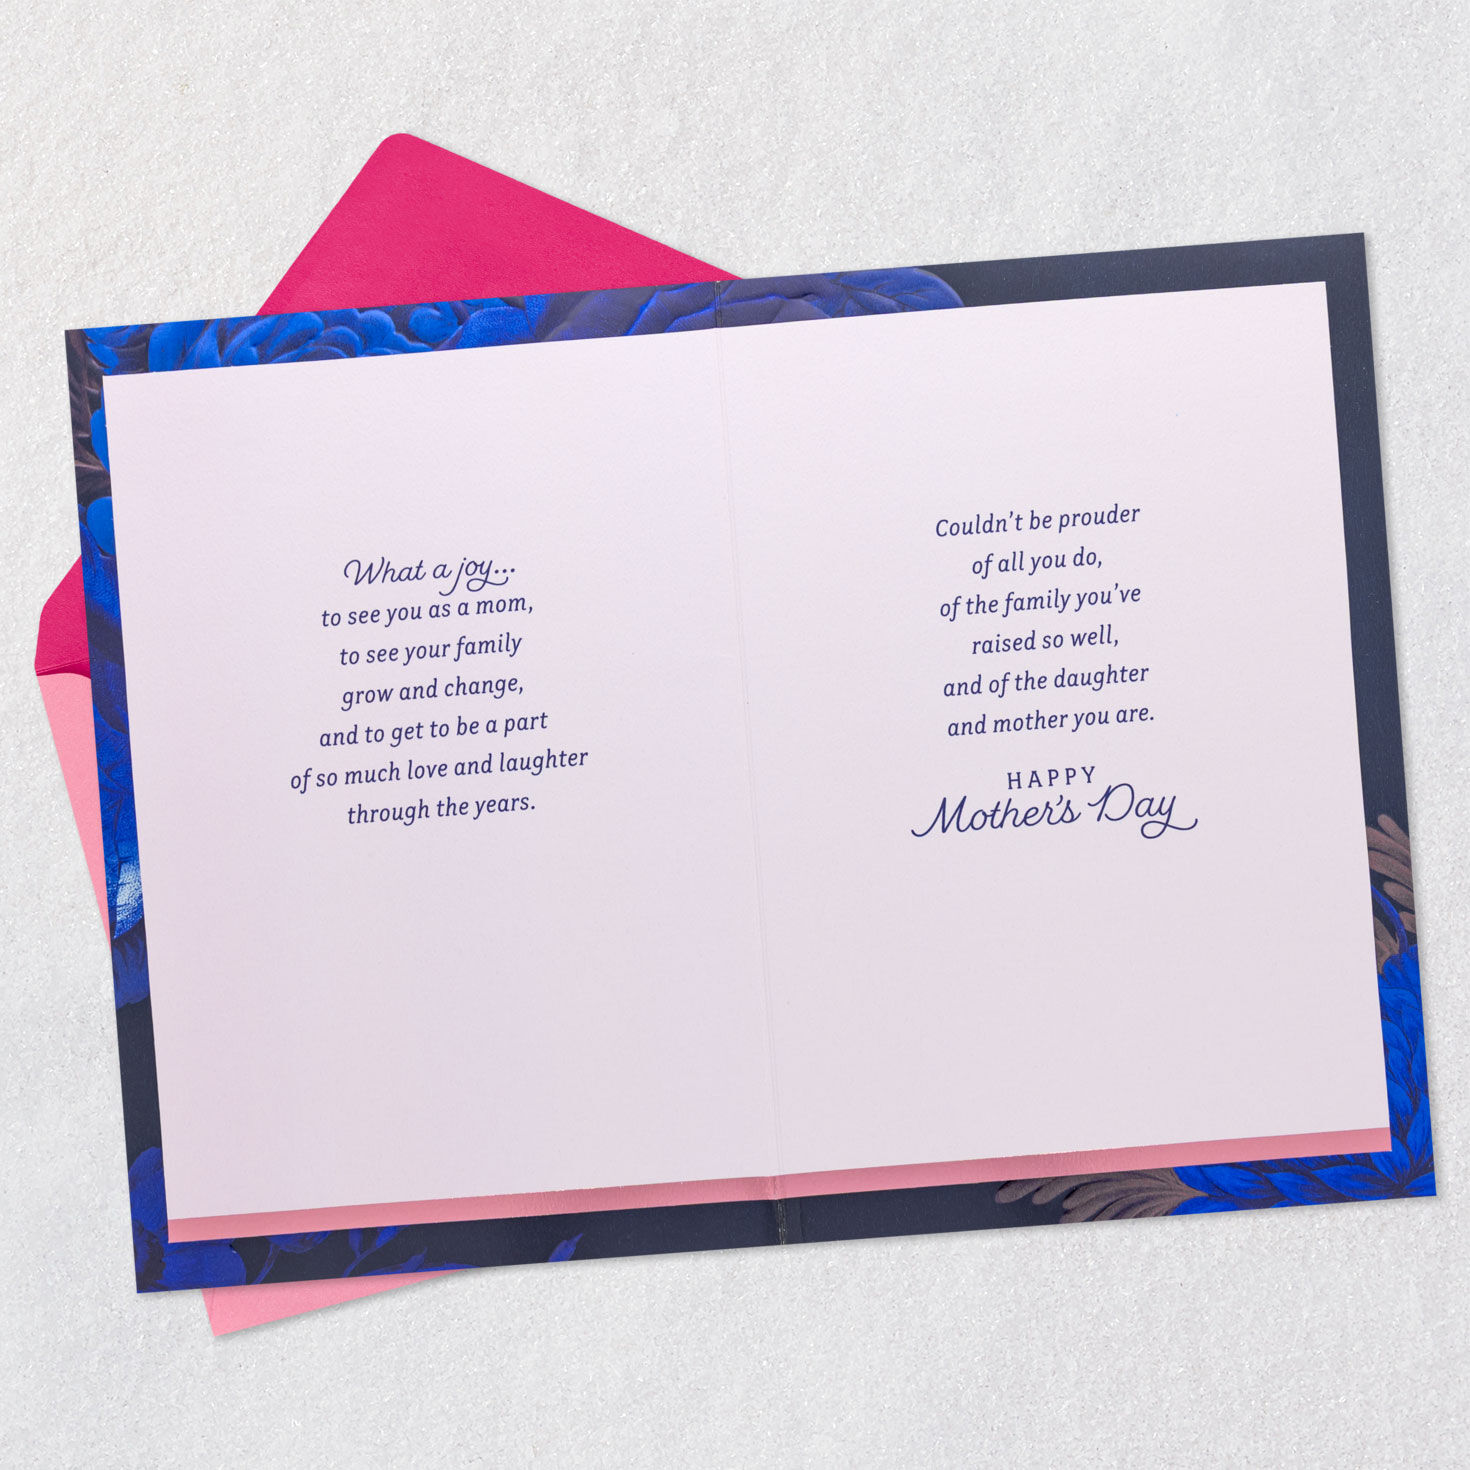 What a joy...
to see you as a mom,
to see your family
grow and change,
and to get to be a part
of so much love and laughter
through the years.
Couldn't be prouder
of all you do,
of the family you've
raised so well,
and of the daughter
and mother you are.
HAPPY
Mother's Day